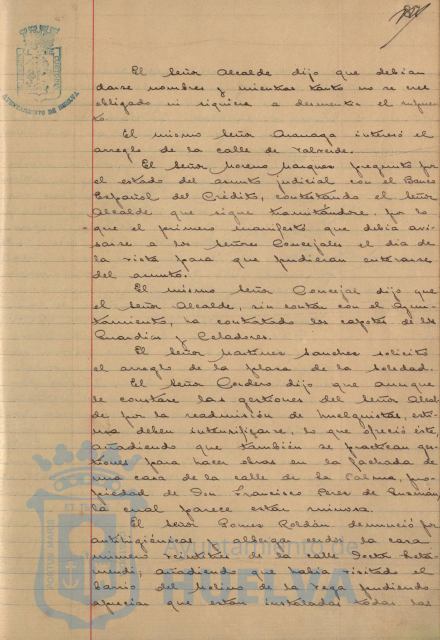 El Señor Alcalde dijo que debian
darse nombres y mientras tanto no se cree
obligado ni siquiera a desmentir el supues-
to.
El mismo Señor Aranaga interesó el
arreglo de la calle de Valverde.
El Señor Moreno Marquez preguntó por
el estado del asunto judicial con el Banco
Español del Crédito, contestando el Señor
Alcalde que sigue tramitándose, por lo
que el primero manifestó que debía avi-
sarse a los Señores Concejales el día de
la vista para que pudieran enterarse
del asunto.
El mismo Señor Concejal dijo que
el Señor Alcalde, sin contar con el Ayun-
tamiento, ha contratado los capotes de los
Guardias y Celadores.
El Señor Martinez Sanchez solicitó
el arreglo de la plaza de la Soledad.
El Señor Cordero dijo que aunque
le constare las gestiones del Señor Alcal-
de por la readmisión de huelguistas, esti-
ma deben intensificarse, lo que ofreció éste,
añadiendo que también se practican ges-
tiones para hacer obras en la fachada de
una casa de la calle de la Palma, pro-
piedad de Don Francisco Perez de Guzmán
la cual parece estar ruinosa.
El Señor Gomez Roldán denunció por
antihigiénica y albergar cerdos la casa
número veintitres de la calle Doctor
añadiendo que habia visitado el
barrio del Molino de la Vega pudiendo
apreciar que están instaladas todas las
AYUNTAMIENTO DE HUELVA
Ayuntamiento de
HUELVA